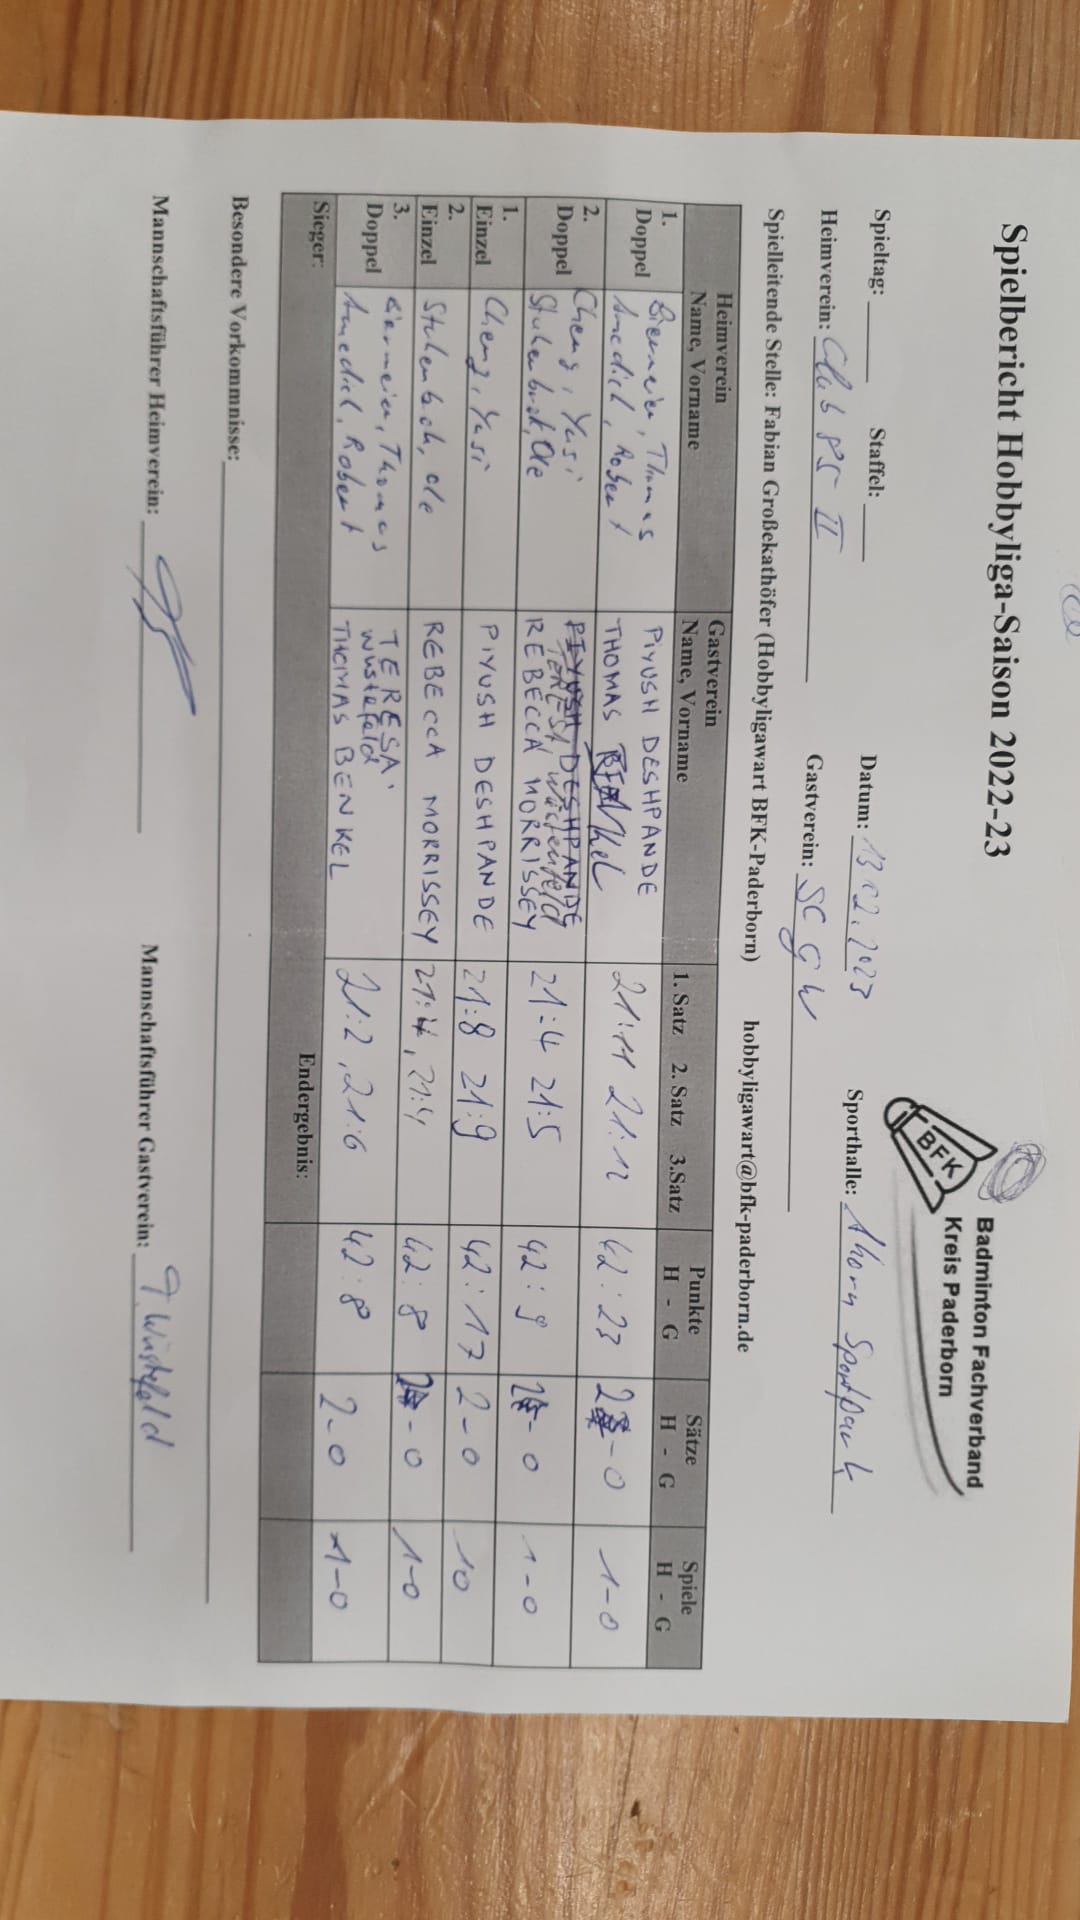 Spielbericht Hobbyliga-Saison 2022-23
BFK
Badminton Fachverband
Kreis Paderborn
Spieltag: Staffel: Datum: 13.02.2023 Sporthalle: Ahorn Sportpark
Heimverein: Club 85 II Gastverein: SC GW
Spielleitende Stelle: Fabian Großekathöfer (Hobbyligawart BFK-Paderborn) hobbyligawart@bfk-paderborn.de
Heimverein Gastverein
Name, Vorname Name, Vorname 1. Satz 2. Satz 3.Satz Punkte H - G Sätze H - G Spiele H - G
1. Doppel Biermeier, Thomas PIYUSH DESHPANDE 21:11 21:12 42:23 2-0 1-0
Amedick, Robert THOMAS
2. Doppel Cheng, Yasi PIYUSH DESHPANDE
TERESA Wüstefeld
Stukenbrock, Ole REBECCA MORRISSEY 21:4 21:5 42:9 2-0 1-0
1. Einzel Cheng, Yasi PIYUSH DESHPANDE 21:8 21:9 42:17 2-0 10
2. Einzel Ole REBECCA MORRISSEY 21:4, 21:4 42:8 2-0 1-0
3. Doppel Biermeier, Thomas TERESA
Wüstefeld
Amedick, Robert THOMAS BENKEL 21:2, 21:6 42:8 2-0 1-0
Sieger: Endergebnis:
Besondere Vorkommnisse:
Mannschaftsführer Heimverein: Mannschaftsführer Gastverein: T. Wüstefeld